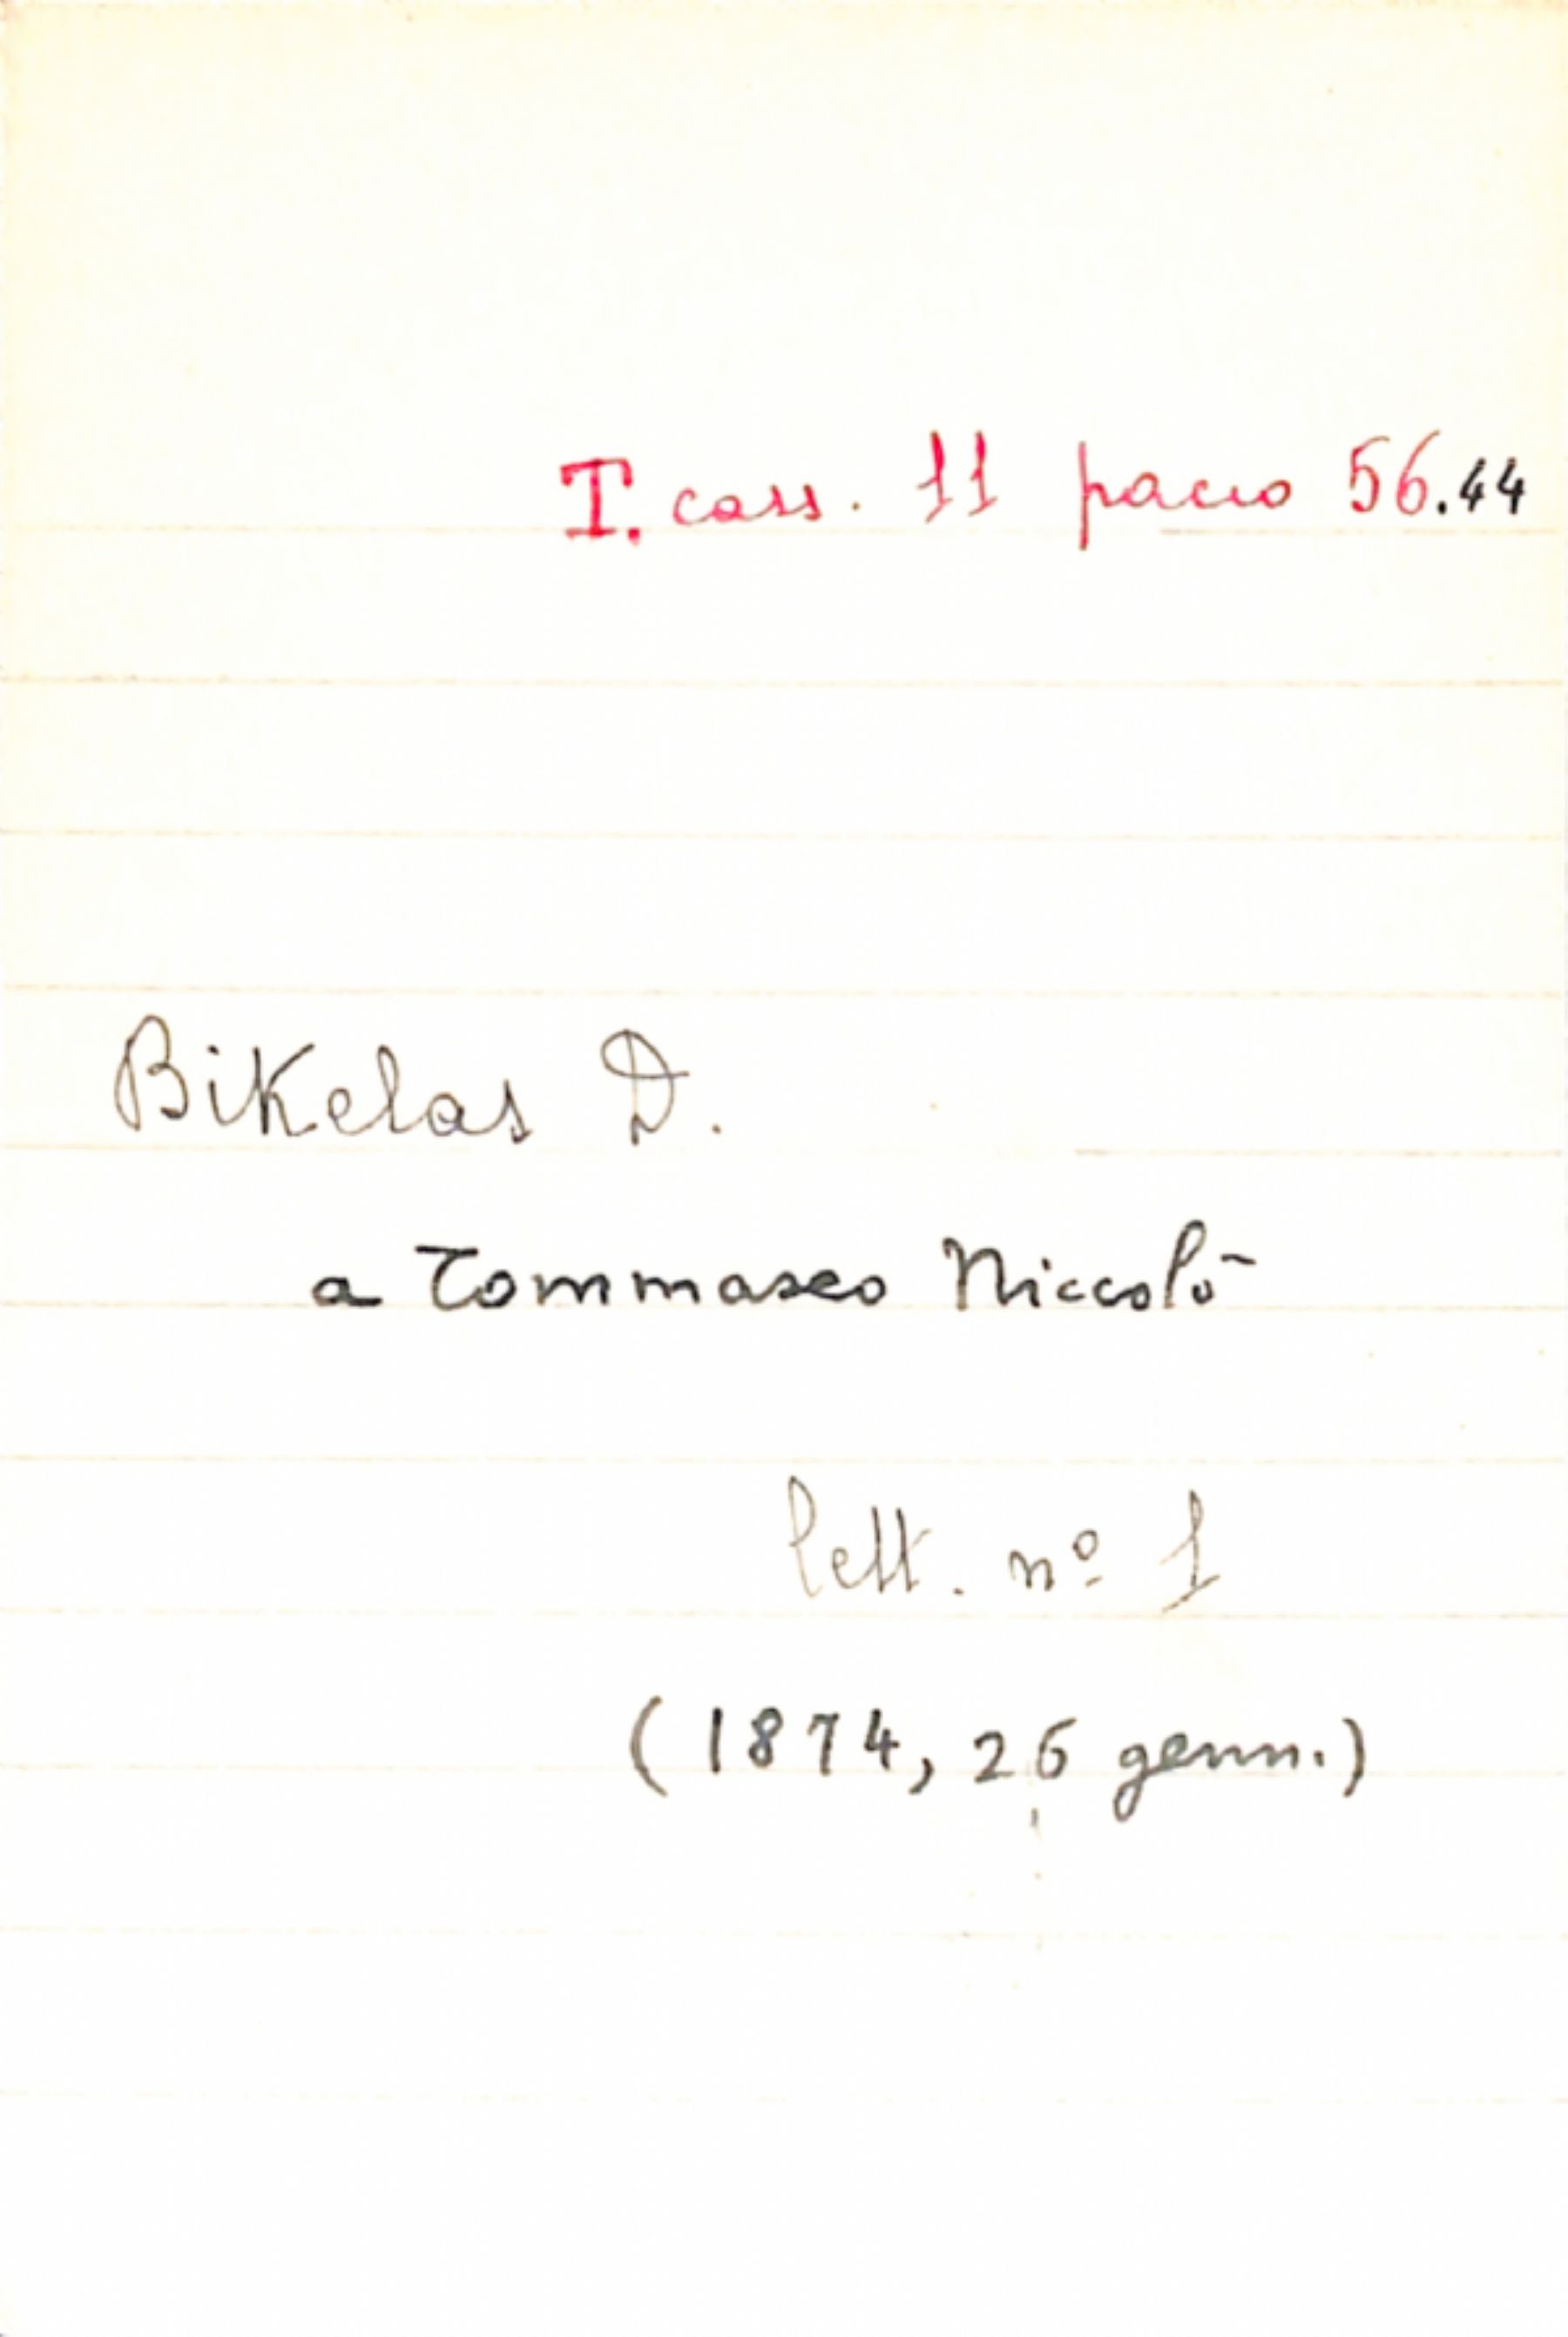 T. cass. 11 pacco 56.44
Bikelas D.
a Tommaseo Niccolò
lett. nº 1
(1874, 26 genn.)